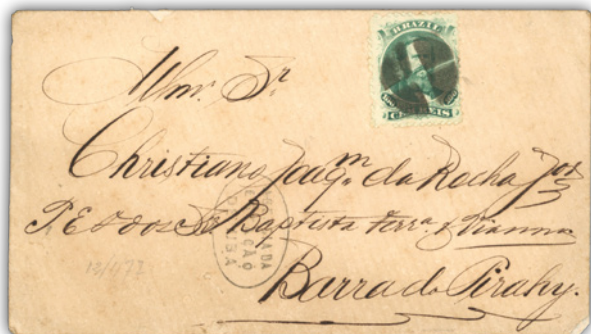 BRAZIL
100 100
CEM REIS
Illmr. Sr
Christiano Joaqm da Rocha Jor
P. E. S dos Srs Baptista Ferra & Vianna
Barra do Pirahy.